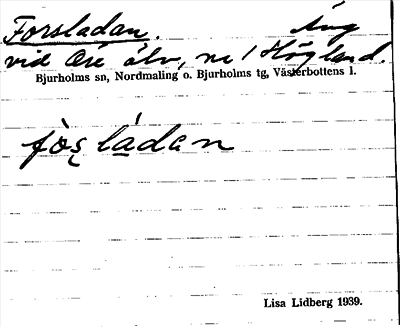 Forsladan. Äng
vid Öre älv, nr 1 Högland.
Bjurholms sn, Nordmaling o. Bjurholms tg, Västerbottens l.
fò̀s̨làdan
Lisa Lidberg 1939.